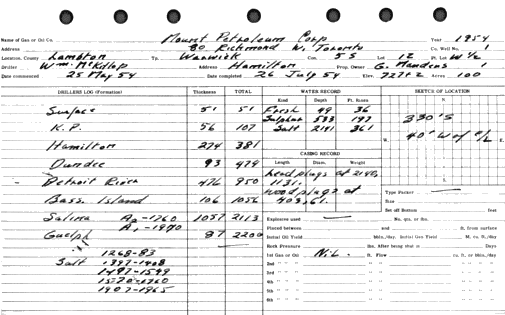 Name of Gas or Oil Co. Mount Petroleum Corp Year 1954
Address 80 Richmond W. Toronto Co. Well No. 1
Location, County Lambton Tp. Warwick Con. 5 S Lot 12 Pt. Lot W ½
Driller Wm. McKillop Address Hamilton Prop. Owner G. 1
Date commenced 25 May 54 Date completed 26 July 54 Elev. Acres 100
DRILLERS LOG (Formation) Thickness TOTAL WATER RECORD SKETCH OF LOCATION
Kind Depth Ft. Rises N.
Surface 51 51 Fresh 49 36
Sulphur 533 197 330'S
K.P. 56 107 Salt 2191 361
W. 40' W of E.
Hamilton 274 381
CASING RECORD
Length Diam. Weight
Dundee 93 474
Lead plugs at 2140,
Detroit River 476 950 1131.
Wood plugs at Type Packer
Bass Island 106 1056 403, 61. Size
Set off Bottom feet
Salina A2-1760 1057 2113 Explosives used No. qts. or lbs.
A1-1970 Placed between and ft. from surface
Guelph 87 2200 Initial Oil Yield bbls./day. Initial Gas Yield M. cu. ft./day
Rock Pressure lbs. After being shut at Days
1268-83 1st Gas or Oil Nil. ft. Flow cu. ft. or bbls./day
Salt 1397-1408 2nd " " " "
1497-1549 3rd " " " "
4th " " " "
1570-1760 5th " " " "
1907-1965 6th " " " "